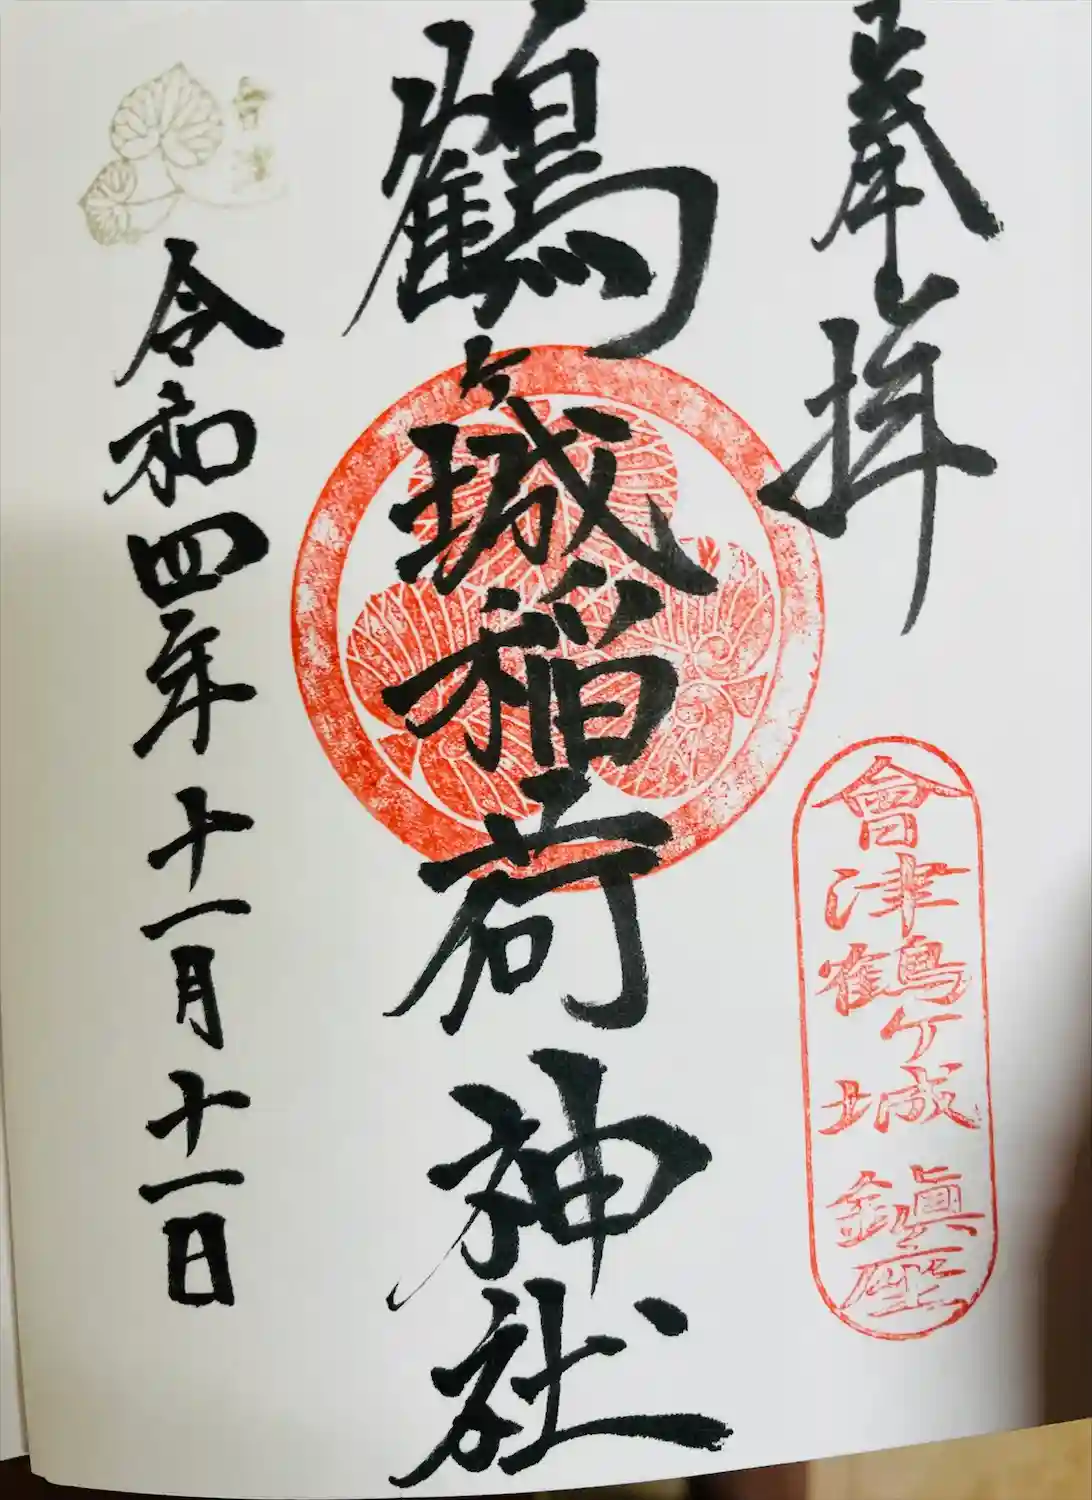 奉拝
會津鶴ケ城鎮座
鶴ヶ城稲荷神社
会津
令和四年十一月十一日